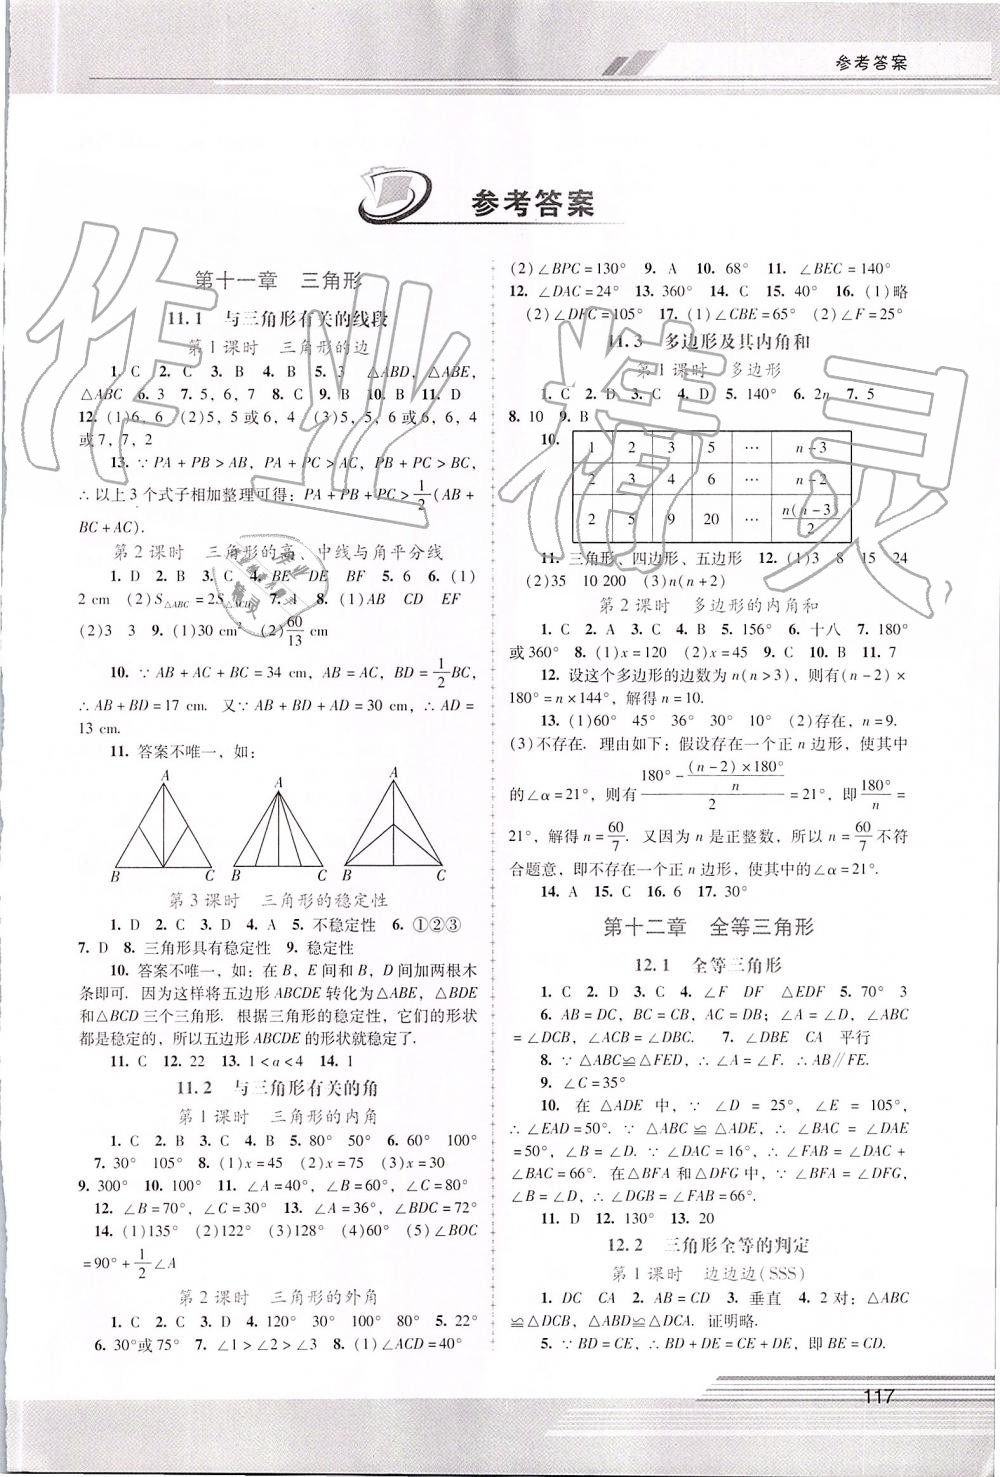 参考答案
参考答案
第十一章 三角形
11.1 与三角形有关的线段
第1课时 三角形的边
1. C 2. C 3. B 4. B 5. 3 △ABD, △ABE,
△ABC 6. 3 7. 5, 6, 7 8. C 9. B 10. B 11. D
12. (1)6, 6 (2)5, 5或6, 4 (3)5, 5, 6或6, 6, 4
或7, 7, 2
13. ∵PA+PB>AB, PA+PC>AC, PB+PC>BC,
∴以上3个式子相加整理可得:PA+PB+PC>1/2(AB+
BC+AC).
第2课时 三角形的高、中线与角平分线
1. D 2. B 3. C 4. BE DE BF 5. 6 6. (1)
2 cm (2)S△ABC=2S△ACD 7. 4 8. (1)AB CD EF
(2)3 3 9. (1)30 cm² (2)60/13 cm
10. ∵AB+AC+BC=34 cm, AB=AC, BD=1/2BC,
∴AB+BD=17 cm. 又∵AB+BD+AD=30 cm, ∴AD=
13 cm.
11. 答案不唯一，如：
A A A
B C B C B C
第3课时 三角形的稳定性
1. D 2. C 3. D 4. A 5. 不稳定性 6. ①②③
7. D 8. 三角形具有稳定性 9. 稳定性
10. 答案不唯一，如：在B，E间和B，D间用两根木
条即可. 因为这样将五边形ABCDE转化为△ABE，△BDE
和△BCD三个三角形. 根据三角形的稳定性，它们的形状
都是稳定的，所以五边形ABCDE的形状就稳定了.
11. C 12. 22 13. 1<a<4 14. 1
11.2 与三角形有关的角
第1课时 三角形的内角
1. C 2. B 3. C 4. B 5. 80° 50° 6. 60° 100°
7. 30° 105° 8. (1)x=45 (2)x=75 (3)x=30
9. 300° 10. 100° 11. ∠A=40°, ∠B=60°, ∠C=80°
12. ∠B=70°, ∠C=30° 13. ∠A=36°, ∠BDC=72°
14. (1)135° (2)122° (3)128° (4)60° (5)∠BOC
=90°+1/2∠A
第2课时 三角形的外角
1. C 2. C 3. D 4. 120° 30° 100° 80° 5. 22°
6. 30°或75° 7. ∠1>∠2>∠3 8. (1)∠ACD=40°
(2)∠BPC=130° 9. A 10. 68° 11. ∠BEC=140°
12. ∠DAC=24° 13. 360° 14. C 15. 40° 16. (1)略
(2)∠DFC=105° 17. (1)∠CBE=65° (2)∠F=25°
11.3 多边形及其内角和
第1课时 多边形
1. C 2. D 3. C 4. D 5. 140° 6. 2n 7. 5
8. 10 9. B
10.
1 2 3 5 … n-3
2 3 4 6 … n-2
2 5 9 20 … n(n-3)/2
11. 三角形、四边形、五边形 12. (1)3 8 15 24
(2)35 10 200 (3)n(n+2)
第2课时 多边形的内角和
1. C 2. A 3. C 4. B 5. 156° 6. 十八 7. 180°
或360° 8. (1)x=120 (2)x=45 9. C 10. B 11. 7
12. 设这个多边形的边数为n(n>3)，则有(n-2)×
180°=n×144°，解得n=10.
13. (1)60° 45° 36° 30° 10° (2)存在，n=9.
(3)不存在. 理由如下：假设存在一个正n边形，使其中
的∠α=21°，则有(180°-(n-2)×180°/n)/2=21°，即180°/n=
21°，解得n=60/7. 又因为n是正整数，所以n=60/7不符
合题意，即不存在一个正n边形，使其中的∠α=21°.
14. A 15. C 16. 6 17. 30°
第十二章 全等三角形
12.1 全等三角形
1. C 2. D 3. C 4. ∠F DF △EDF 5. 70° 3
6. AB=DC, BC=CB, AC=DB; ∠A=∠D, ∠ABC
=∠DCB, ∠ACB=∠DBC. 7. ∠DBE CA 平行
8. ∵△ABC≌△FED, ∴∠A=∠F. ∴AB∥FE.
9. ∠C=35°
10. 在△ADE中，∵∠D=25°, ∠E=105°,
∴∠EAD=50°. ∵△ABC≌△ADE, ∴∠BAC=∠DAE
=50°, ∠B=∠D. ∵∠DAC=16°, ∴∠FAB=∠DAC+
∠BAC=66°. 在△BFA和△DFG中，∵∠BFA=∠DFG,
∠B=∠D, ∴∠DGF=∠FAB=66°.
11. D 12. 130° 13. 20
12.2 三角形全等的判定
第1课时 边边边(SSS)
1. DC CA 2. AB=CD 3. 垂直 4. 2对；△ABC
≌△DCB, △ABD≌△DCA. 证明略.
5. ∵BD=CE, ∴BD+DE=CE+DE, 即BE=CD.
117
作业精灵